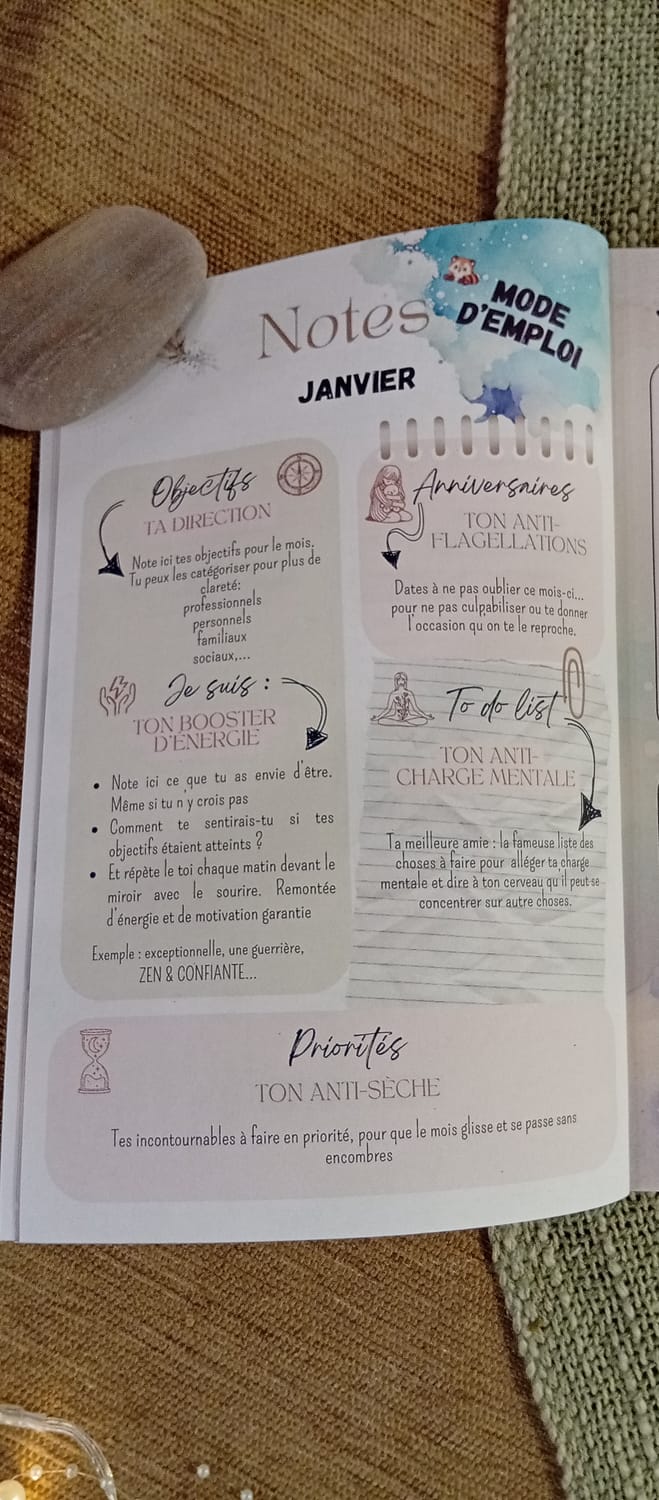 Notes
MODE
D'EMPLOI
JANVIER
Objectifs
TA DIRECTION
Note ici tes objectifs pour le mois.
Tu peux les catégoriser pour plus de
clareté:
professionnels
personnels
familiaux
sociaux,...
Je suis :
TON BOOSTER
D'ÉNERGIE
• Note ici ce que tu as envie d'être.
Même si tu n'y crois pas
• Comment te sentirais-tu si tes
objectifs étaient atteints ?
• Et répète le toi chaque matin devant le
miroir avec le sourire. Remontée
d'énergie et de motivation garantie
Exemple : exceptionnelle, une guerrière,
ZEN & CONFIANTE...
Anniversaires
TON ANTI-
FLAGELLATIONS
Dates à ne pas oublier ce mois-ci...
pour ne pas culpabiliser ou te donner
l'occasion qu'on te le reproche.
To do list
TON ANTI-
CHARGE MENTALE
Ta meilleure amie : la fameuse liste des
choses à faire pour alléger ta charge
mentale et dire à ton cerveau qu'il peut se
concentrer sur autre choses.
Priorités
TON ANTI-SÈCHE
Tes incontournables à faire en priorité, pour que le mois glisse et se passe sans
encombres